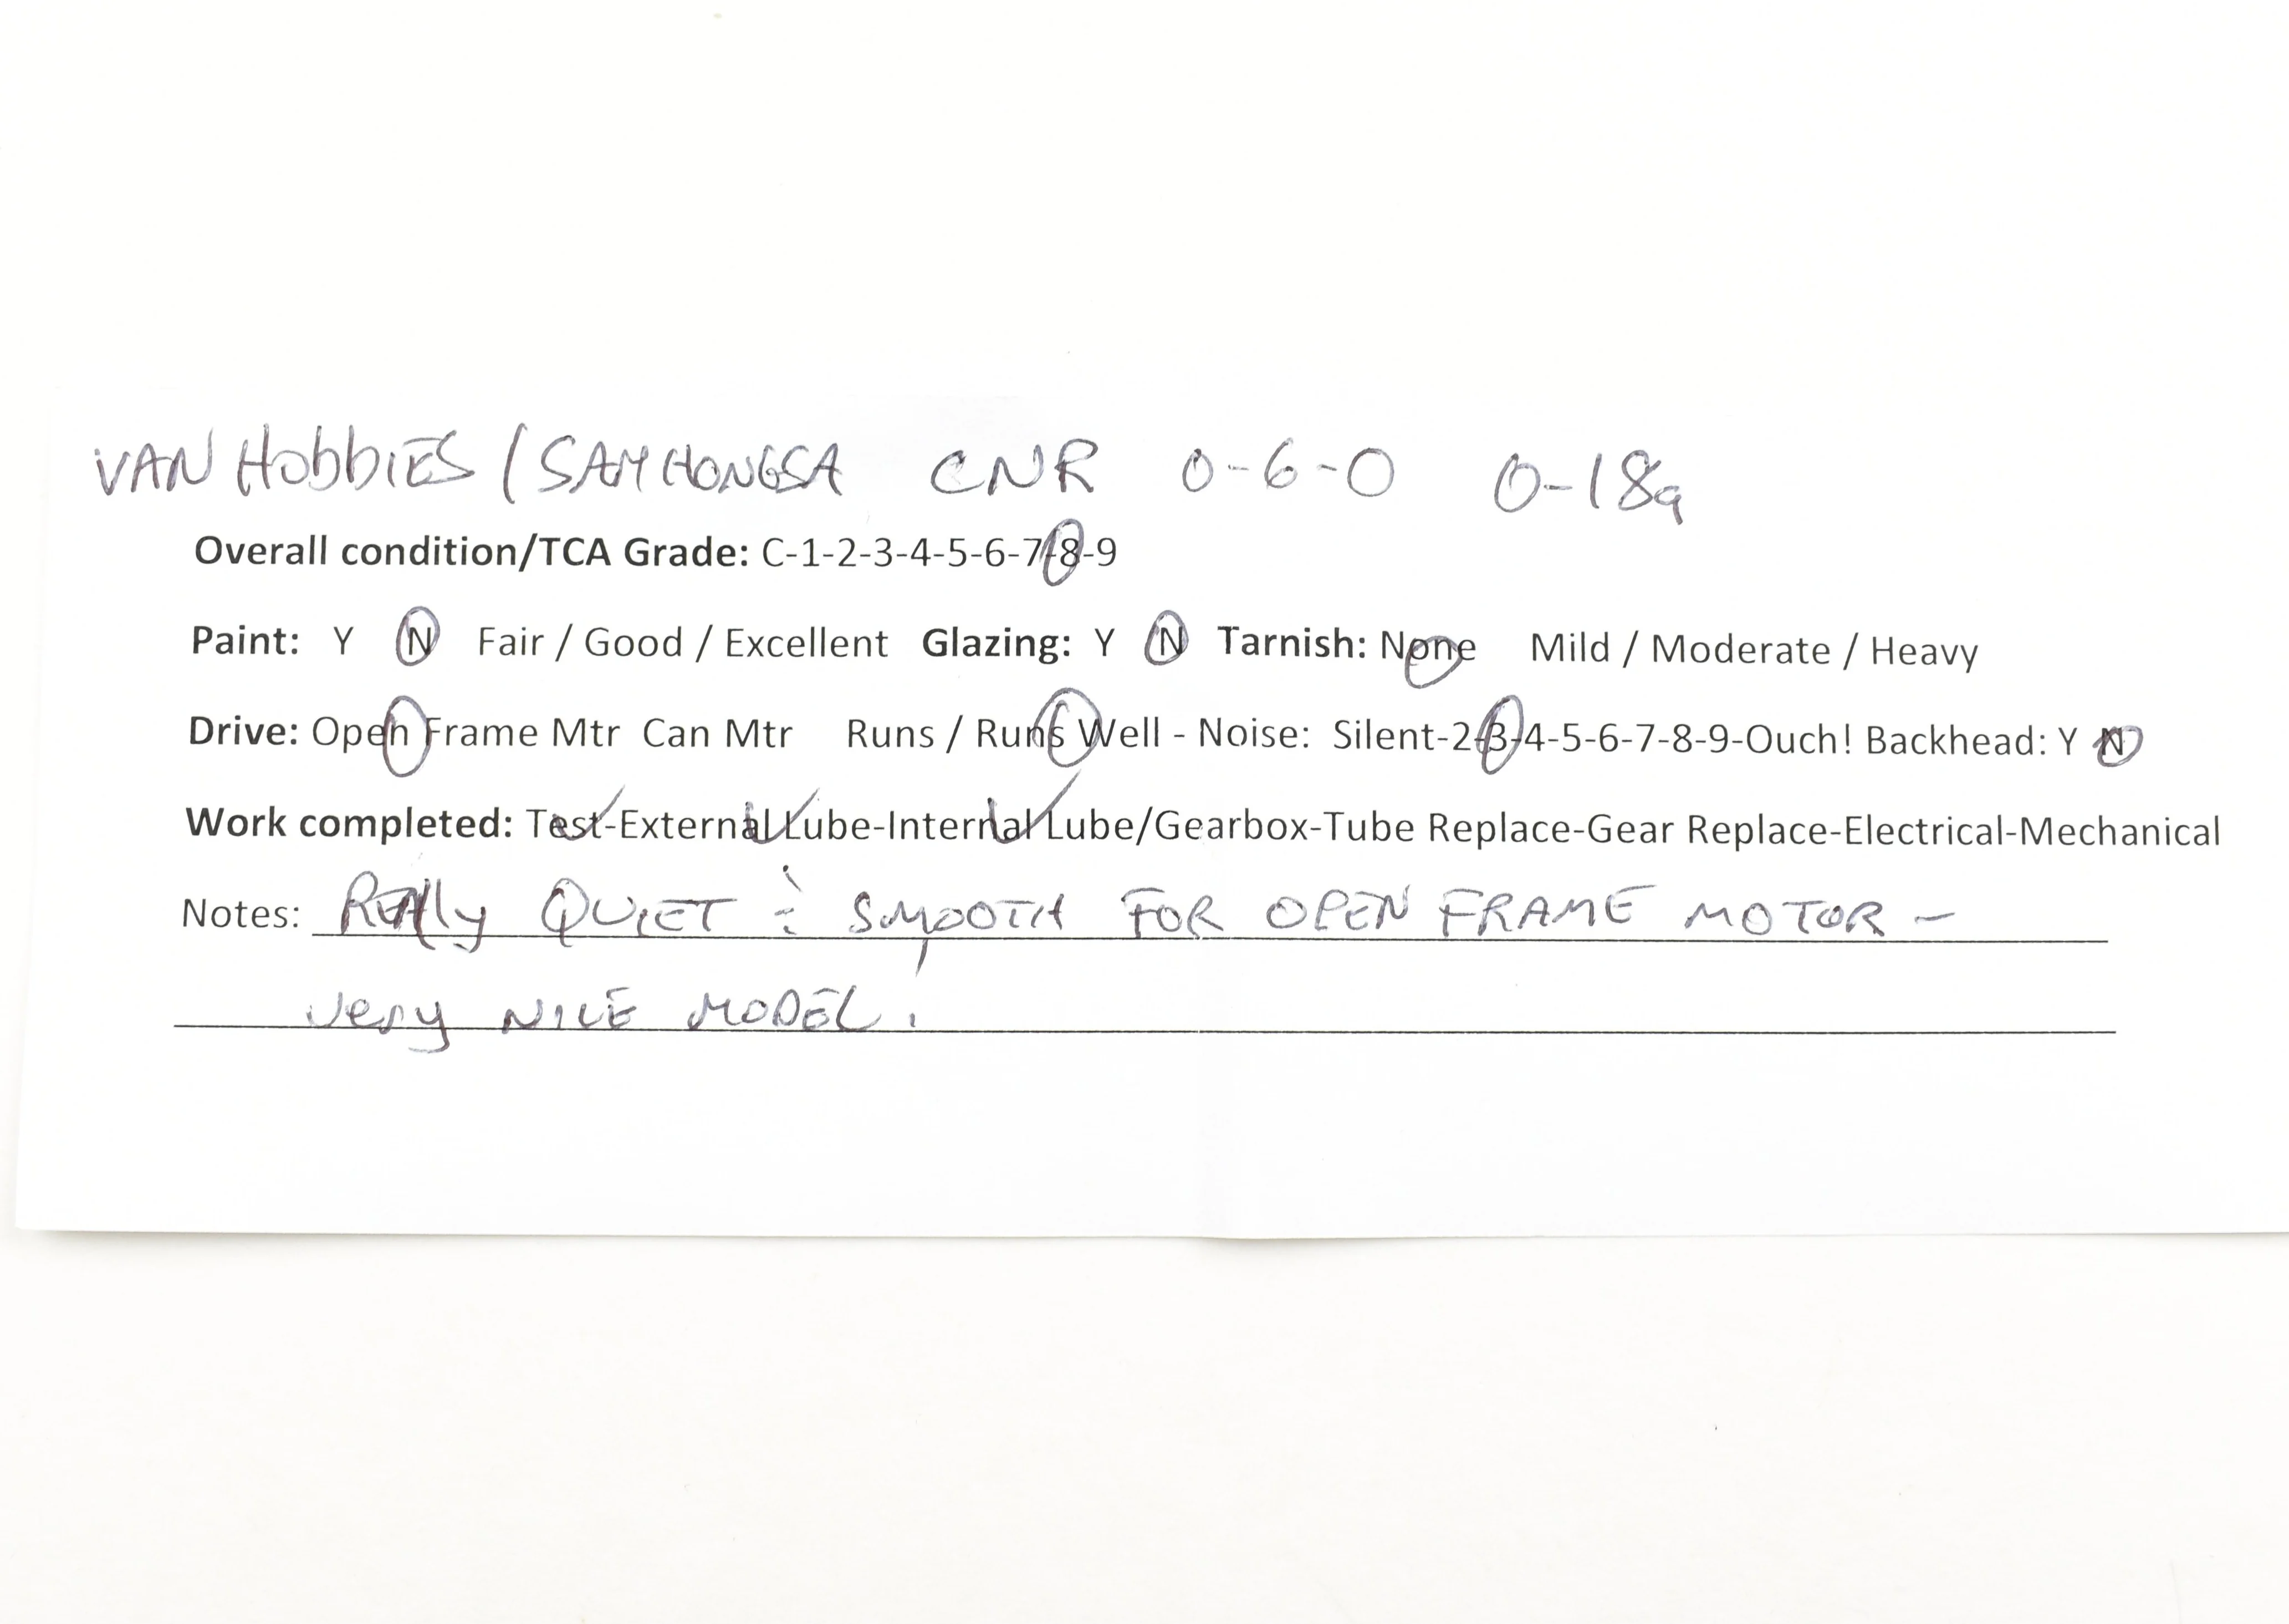 VAN HobbiES / SAMHONGSA CNR 0-6-0 O-18a
Overall condition/TCA Grade: C-1-2-3-4-5-6-7-8-9
Paint: Y N Fair / Good / Excellent Glazing: Y N Tarnish: None Mild / Moderate / Heavy
Drive: Open Frame Mtr Can Mtr Runs / Runs Well - Noise: Silent-2-3-4-5-6-7-8-9-Ouch! Backhead: Y N
Work completed: Test-External Lube-Internal Lube/Gearbox-Tube Replace-Gear Replace-Electrical-Mechanical
Notes: REAlly QUIET & SMOOTH FOR OPEN FRAME MOTOR –
very NICE MODEL!